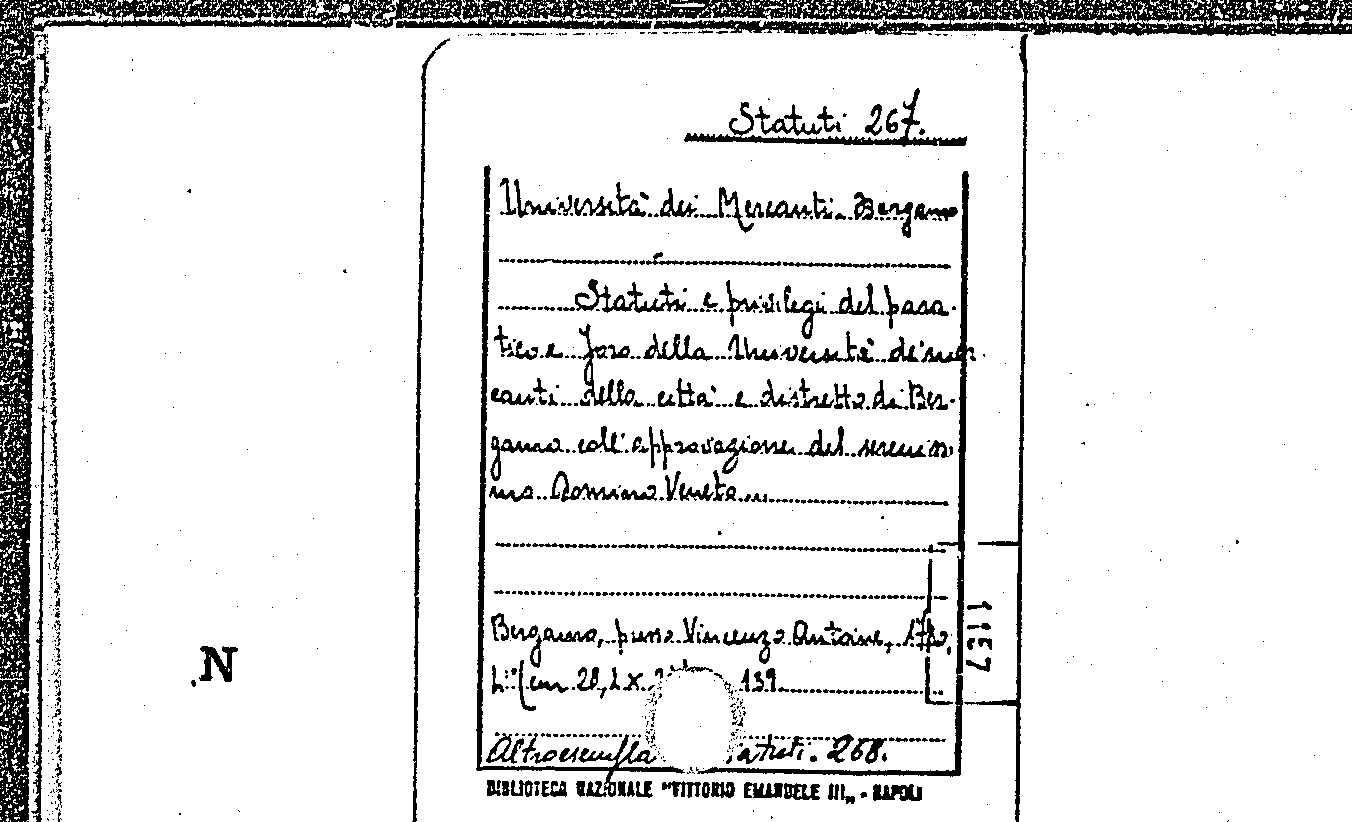 Statuti 267.
Università dei Mercanti. Bergamo
Statuti e privilegi del para-
tico e foro della Università de' mer-
canti della città e distretto di Ber-
gamo coll' approvazione del serenis
mo Domino Veneto...
Bergamo, Vincenzo Antoine,
28,2 x 139
Altro esempla atuti. 268.
BIBLIOTECA NAZIONALE "VITTORIO EMANUELE III„ - NAPOLI
1137
N